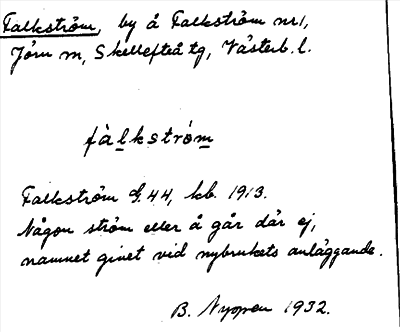 Falkström, by å Falkström nr 1,
Jörn sn, Skellefteå tg, Västerb. l.
fàlkstróm
Falkström G. 44, kb. 1913.
Någon ström eller å går där ej,
namnet givet vid nybrukets anläggande.
B. Nyppen 1932.